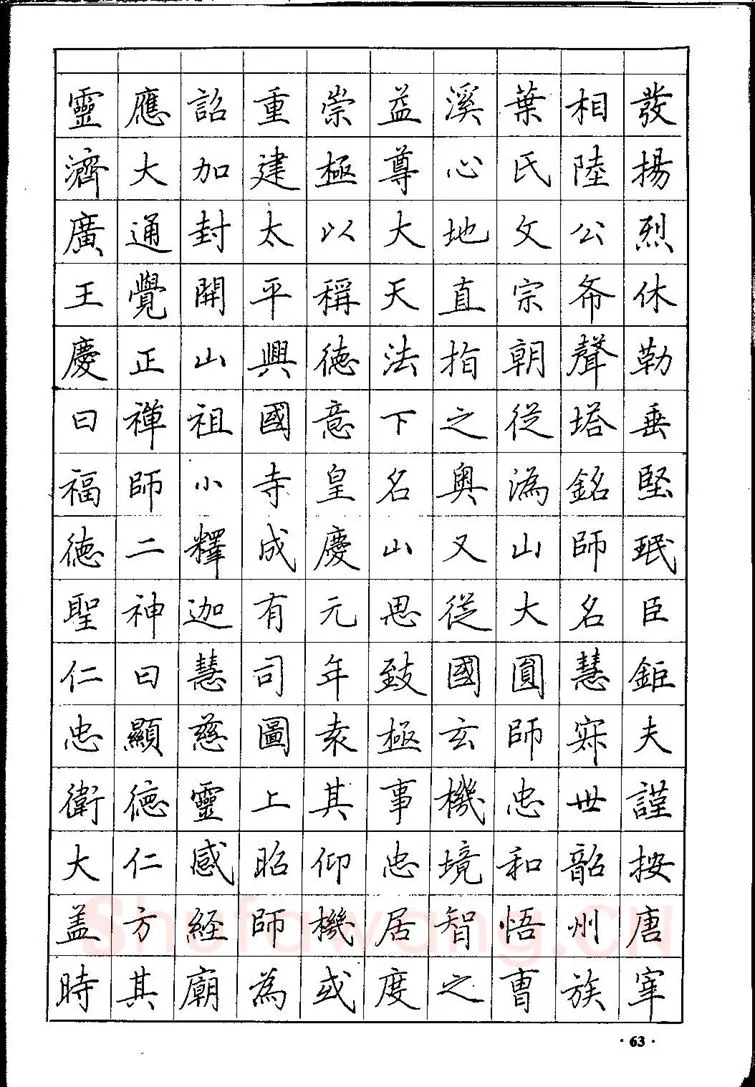 發揚烈休勒垂堅珉臣鉅夫謹按唐宰
相陸公希聲塔銘師名慧寂世韶州族
葉氏文宗朝從溈山大圓師忠和悟曹
溪心地直指之奧又從國玄機境智之
益尊大天法下名山思致極事忠居度
崇極以稱德意皇慶元年袁其仰機或
重建太平興國寺成有司圖上昭師為
詔加封開山祖小釋迦慧慈靈感經廟
應大通覺正禪師二神曰顯德仁方其
靈濟廣王慶曰福德聖仁忠衛大蓋時
Shufawang.CN
·63·